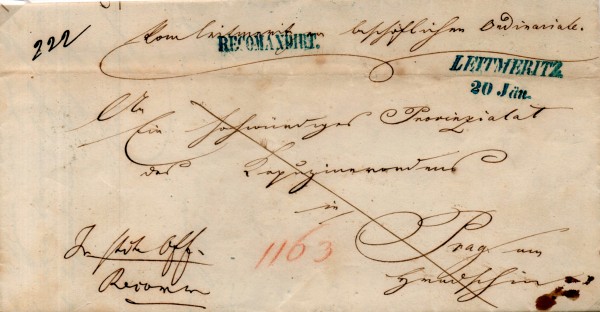 222
Vom leitmeritzer bischöflichen Ordinariate.
RECOMANDIRT.
LEITMERITZ
20 Jän.
An
Ein hochwürdiges Provinzialat
des Kapuzinerordens
in
Prag am
Hradschin
1163
Off.
Recom